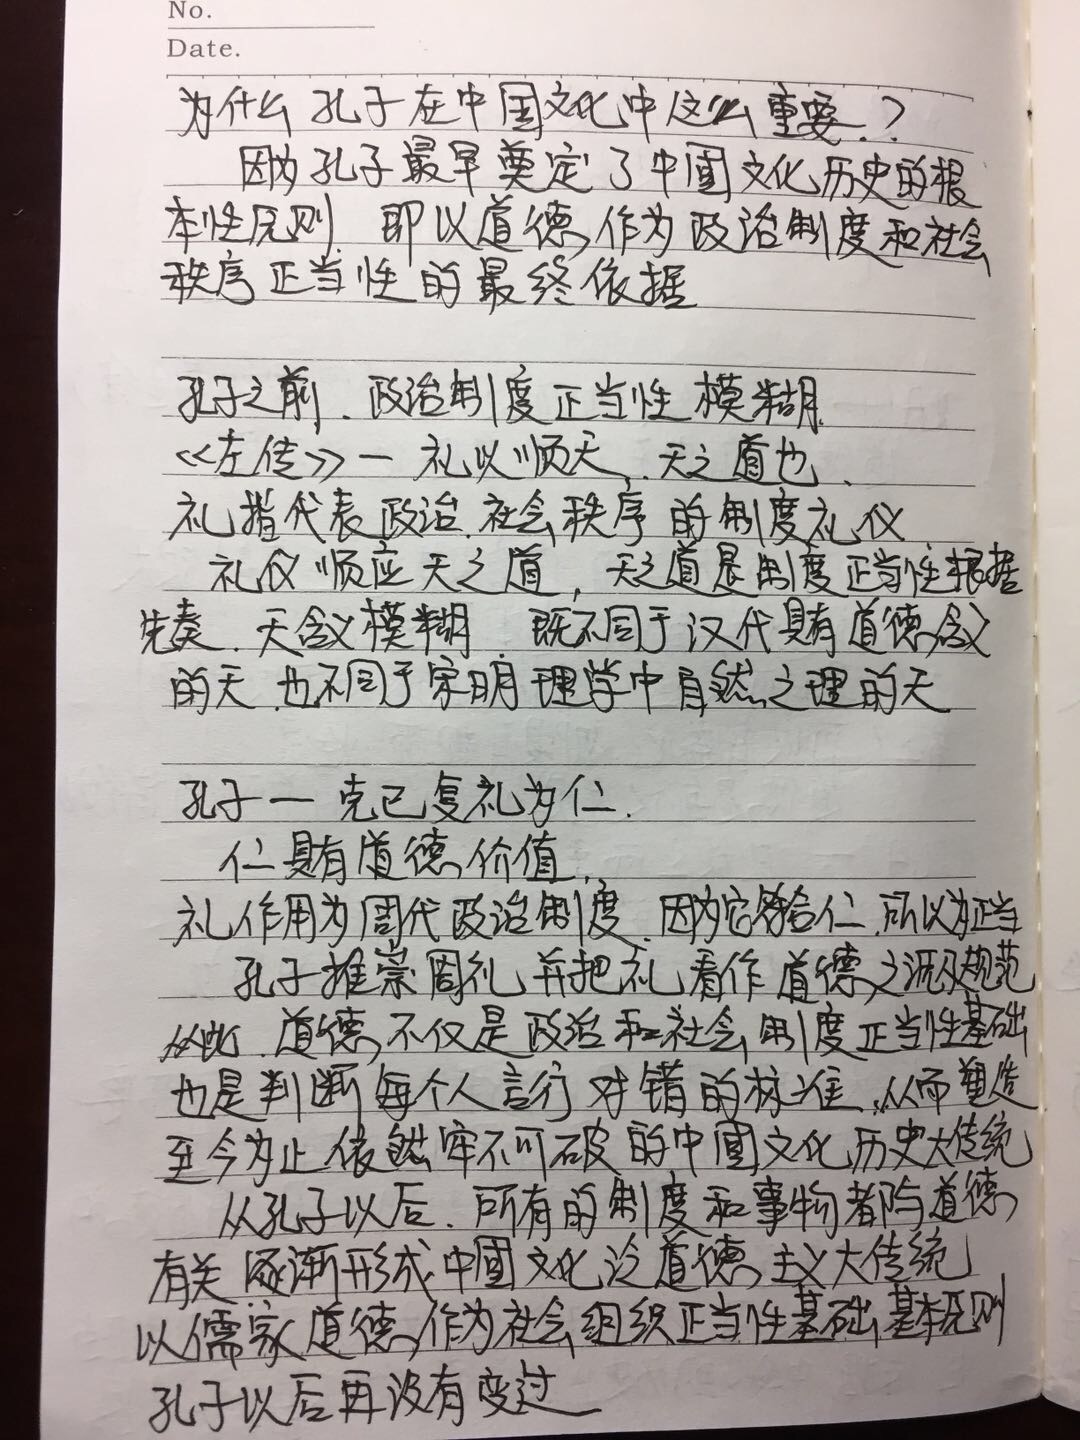 No.
Date.
为什么孔子在中国文化中这么重要.?
因为孔子最早奠定了中國文化历史的根
本性原则. 即以道德作为政治制度和社会
秩序正当性的最终依据
孔子之前. 政治制度正当性模糊.
《左传》— 礼以顺天, 天之道也.
礼指代表政治.社会秩序的制度礼仪
礼仪顺应天之道, 天之道是制度正当性根据
先秦. 天含义模糊 既不同于汉代具有道德含义
的天.也不同于宋明理学中自然之理的天
孔子 — 克已复礼为仁.
仁具有道德价值.
礼作用为周代政治制度.因为它符合仁.所以为正当
孔子推崇周礼并把礼看作道德之源及规范
从此. 道德不仅是政治和社会制度正当性基础
也是判断每个人言行对错的标准.从而塑造
至今为止依然牢不可破的中國文化历史大传统
从孔子以后. 所有的制度和事物都与道德
有关 逐渐形成中國文化泛道德主义大传统
以儒家道德作为社会组织正当性基础.基本原则
孔子以后再没有变过